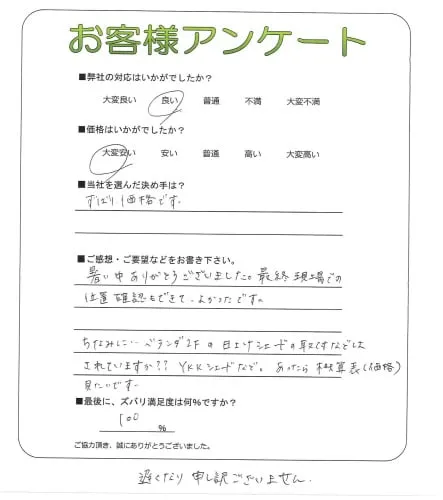 お客様アンケート
■弊社の対応はいかがでしたか？
大変良い 良い 普通 不満 大変不満
■価格はいかがでしたか？
大変安い 安い 普通 高い 大変高い
■当社を選んだ決め手は？
ずばり価格です。
■ご感想・ご要望などをお書き下さい。
暑い中ありがとうございました。最終現場での
位置確認もできて、よかったです。
ちなみに… ベランダ2Fの日よけシェードの取付などは
されていますか?? YKKシェードなど。あったら 概算表(価格)
見たいです。
■最後に、ズバリ満足度は何％ですか？
100
％
ご協力頂き、誠にありがとうございました。
遅くなり申し訳ございません。